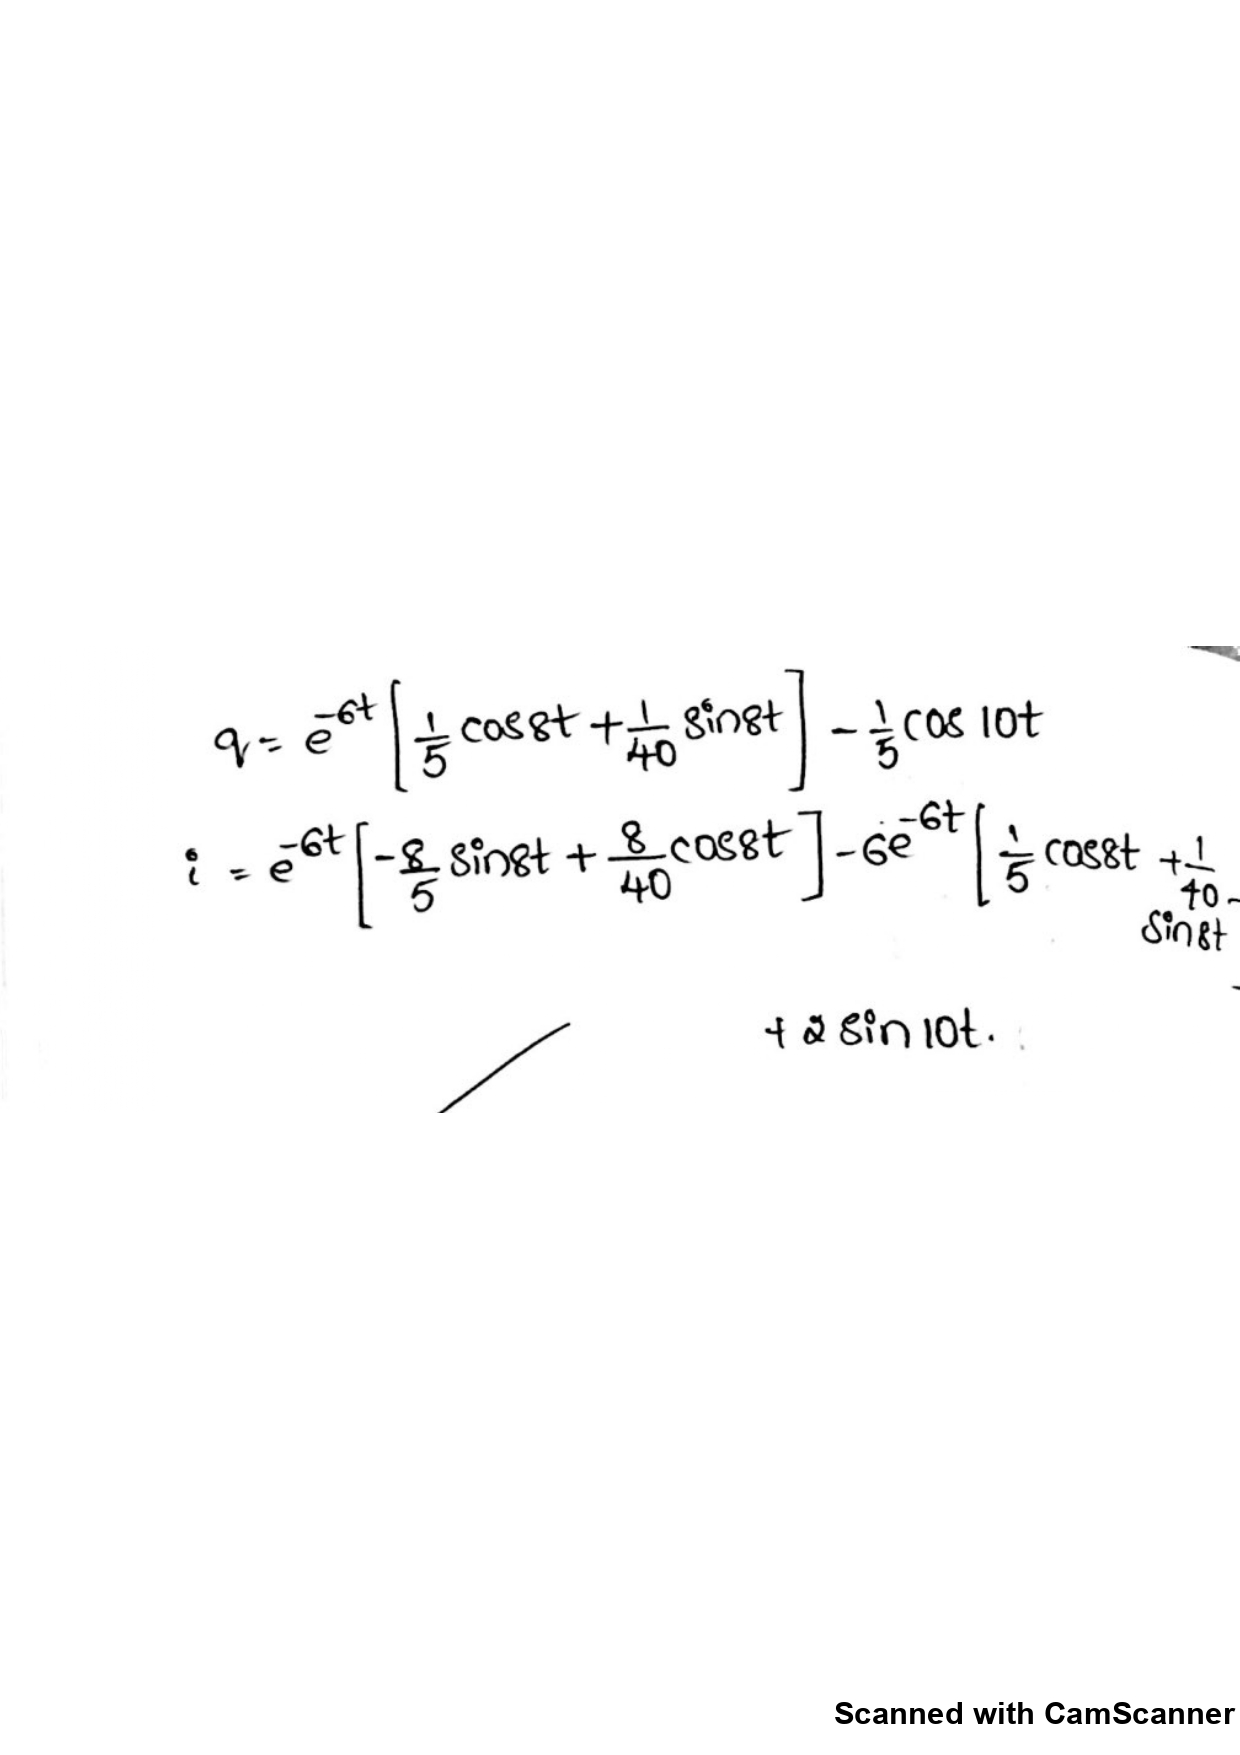 q = e^{-6t} [ 1/5 cos8t + 1/40 sin8t ] - 1/5 cos 10t
i = e^{-6t} [ -8/5 sin8t + 8/40 cos8t ] - 6e^{-6t} [ 1/5 cos8t + 1/40
sin8t
+ 2 sin 10t.
Scanned with CamScanner